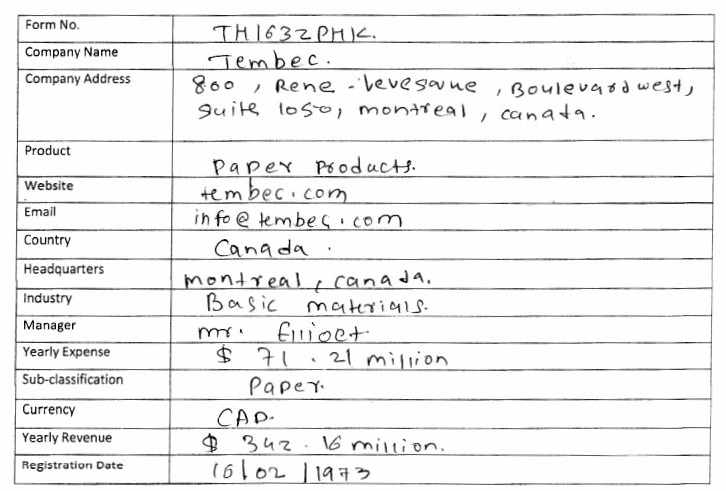 Form No. TH1632PHK.
Company Name Tembec.
Company Address 800, Rene-Levesque, Boulevard west,
suite 1050, montreal, canada.
Product Paper Products.
Website tembec.com
Email info@tembec.com
Country Canada.
Headquarters montreal, canada.
Industry Basic materials.
Manager mr. Elliot
Yearly Expense $ 71.21 million
Sub-classification Paper.
Currency CAD.
Yearly Revenue $ 342.16 million.
Registration Date 16/02/1973